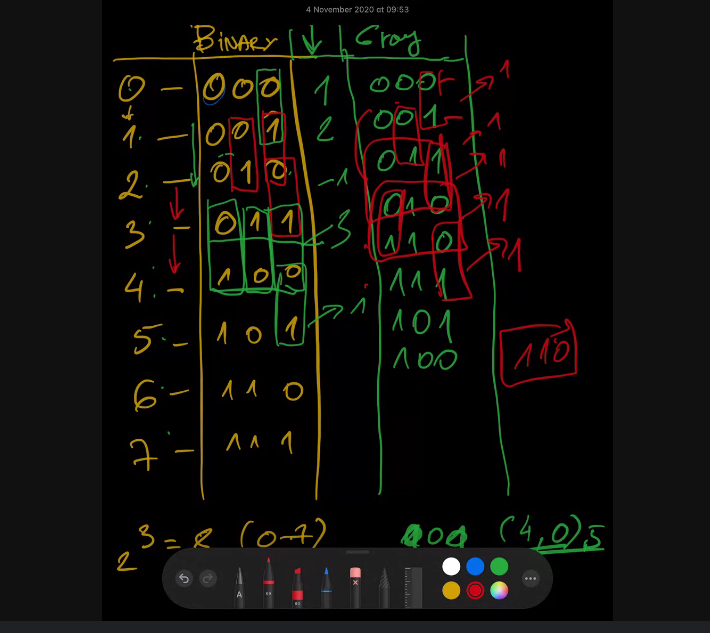 4 November 2020 at 09:53
BINARY ↓ Gray
0 - 000 1 000 1
1 - 001 2 001 1
2 - 010 -1 011 1
3 - 011 3 010 1
4 - 100 110 1
5 - 101 1 111
6 - 110 101 110
7 - 111 100
2^3 = 8 (0-7) (4,0)5
A